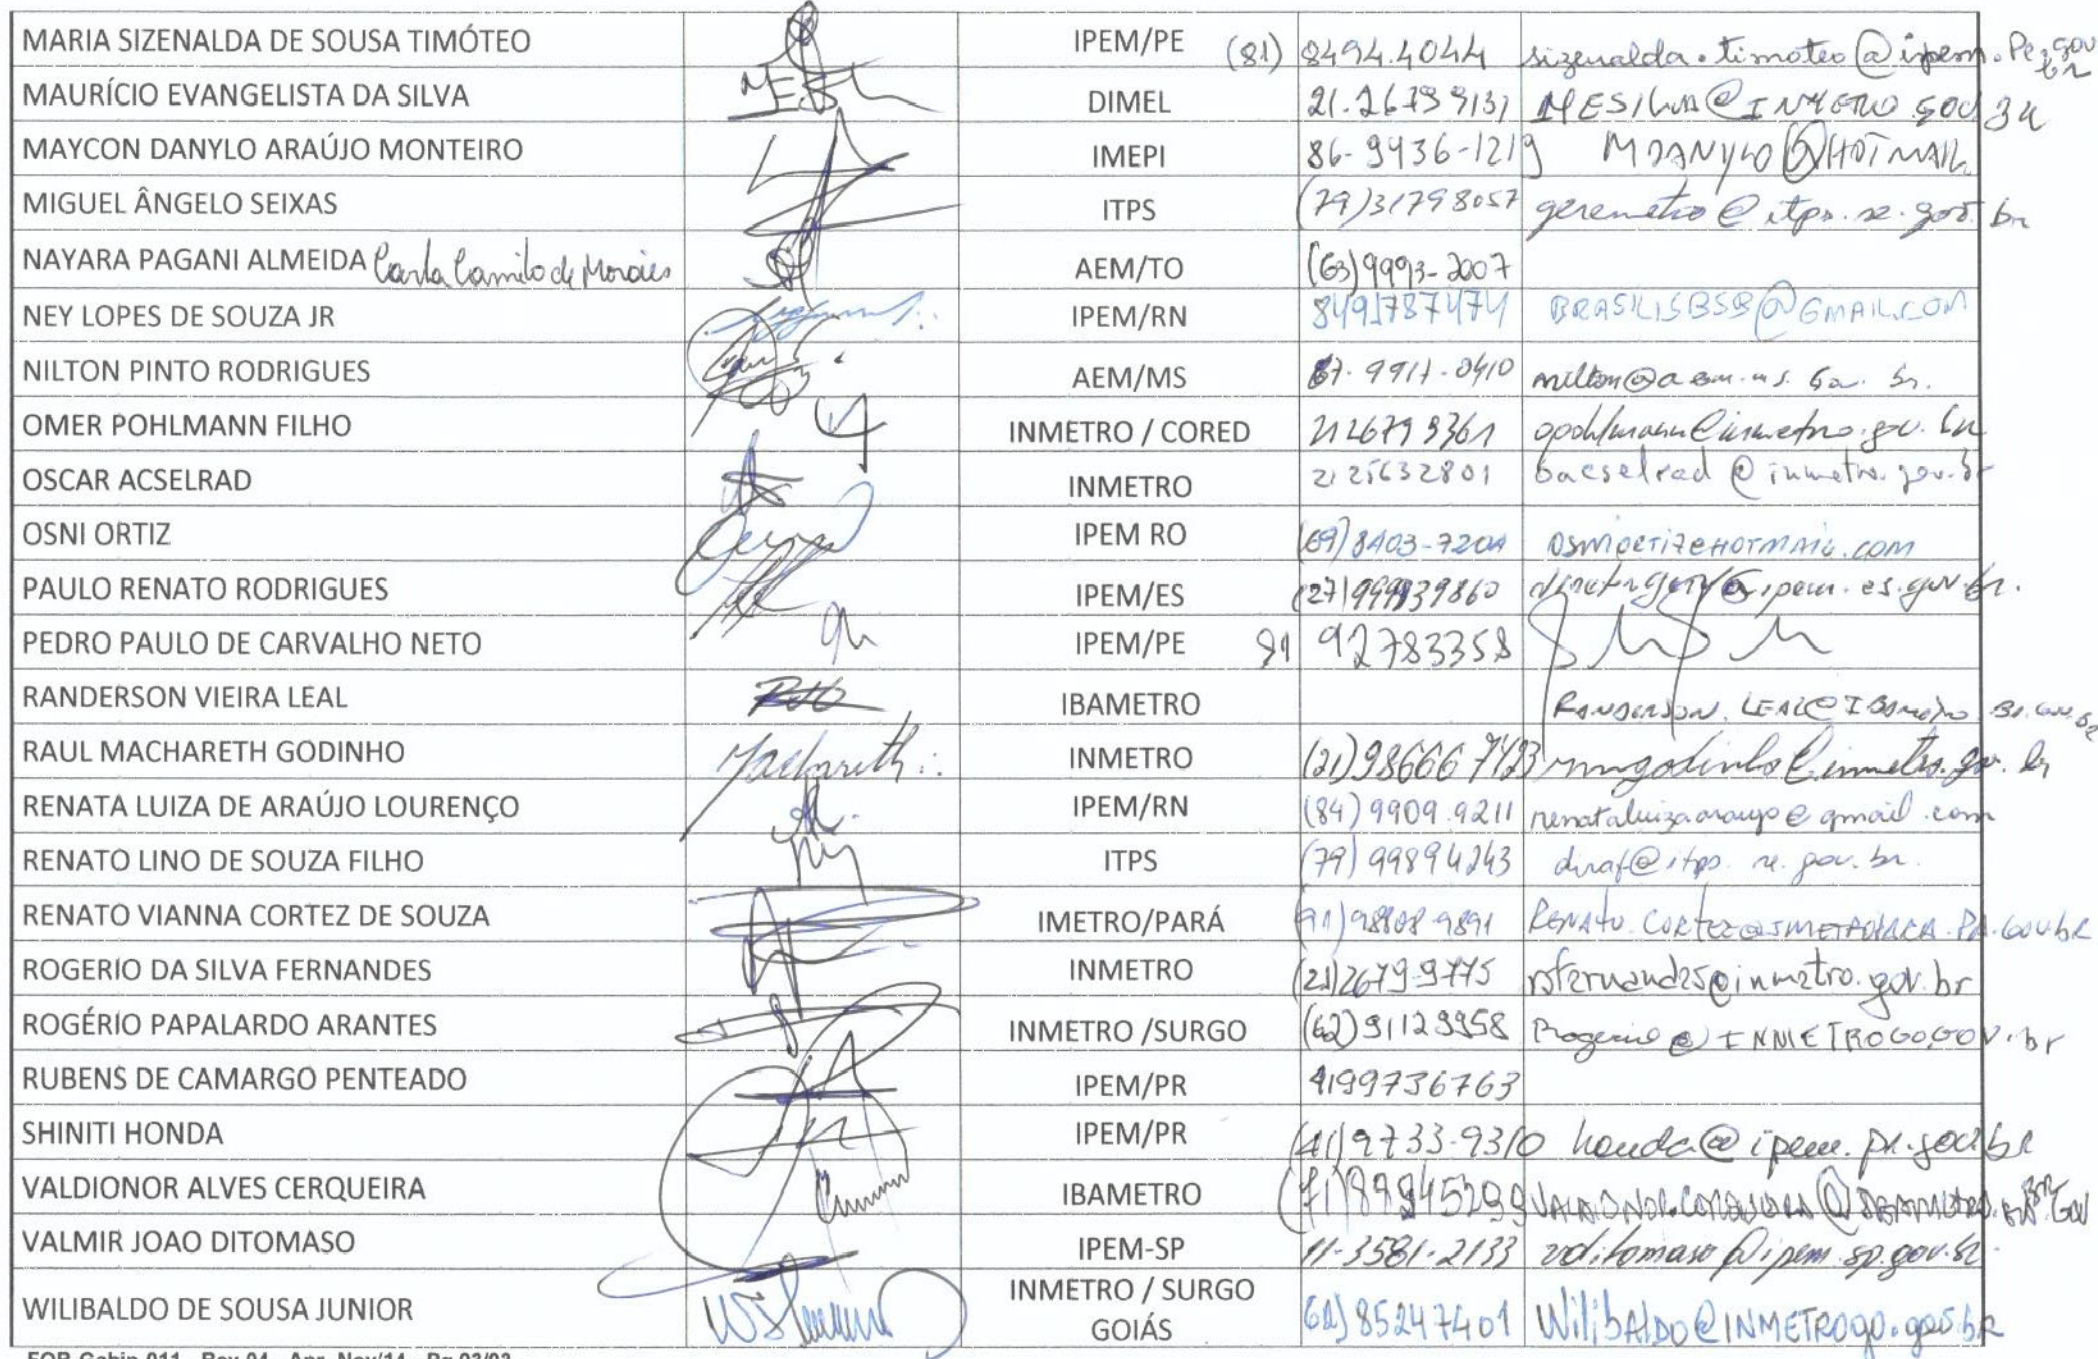 MARIA SIZENALDA DE SOUSA TIMÓTEO IPEM/PE (81) 8494.4044 sizenalda.timoteo@ipem.pe.gov.br
MAURÍCIO EVANGELISTA DA SILVA DIMEL 21.26799131 MESILVA@INMETRO.GOV.BR
MAYCON DANYLO ARAÚJO MONTEIRO IMEPI 86-9936-1219 MDANYLO@HOTMAIL
MIGUEL ÂNGELO SEIXAS ITPS (79)31798057 geremetro@itps.se.gov.br
NAYARA PAGANI ALMEIDA Carla Camilo de Moraies AEM/TO (63)9993-2007
NEY LOPES DE SOUZA JR IPEM/RN 8491787474 BRASILISBSB@GMAIL.COM
NILTON PINTO RODRIGUES AEM/MS 67-9911-0410
OMER POHLMANN FILHO INMETRO / CORED 2126799361 opohlmann@inmetro.gov.br
OSCAR ACSELRAD INMETRO 2125632801 oacselrad@inmetro.gov.br
OSNI ORTIZ IPEM RO (69)8403-7204 osniortiz@HOTMAIL.COM
PAULO RENATO RODRIGUES IPEM/ES
PEDRO PAULO DE CARVALHO NETO IPEM/PE 81 92783358
RANDERSON VIEIRA LEAL IBAMETRO
RAUL MACHARETH GODINHO Machareth INMETRO (21)986667423 rmgodinho@inmetro.gov.br
RENATA LUIZA DE ARAÚJO LOURENÇO IPEM/RN (84) 9909.9211 renataluizaaraujo@gmail.com
RENATO LINO DE SOUZA FILHO ITPS (79) 99894243 diraf@itps.se.gov.br
RENATO VIANNA CORTEZ DE SOUZA IMETRO/PARÁ
ROGERIO DA SILVA FERNANDES INMETRO (21)2679-9775 rsfernandes@inmetro.gov.br
ROGÉRIO PAPALARDO ARANTES INMETRO /SURGO (62)91129958 Progerio@INMETROGO.GOV.br
RUBENS DE CAMARGO PENTEADO IPEM/PR 4199736763
SHINITI HONDA IPEM/PR (41)9733-9310 honda@ipem.pr.gov.br
VALDIONOR ALVES CERQUEIRA IBAMETRO
VALMIR JOAO DITOMASO IPEM-SP 11-3581-2133 vditomaso@ipem.sp.gov.br
WILIBALDO DE SOUSA JUNIOR INMETRO / SURGO
GOIÁS 62)85247401 WilibALDO@INMETROgo.gov.bR